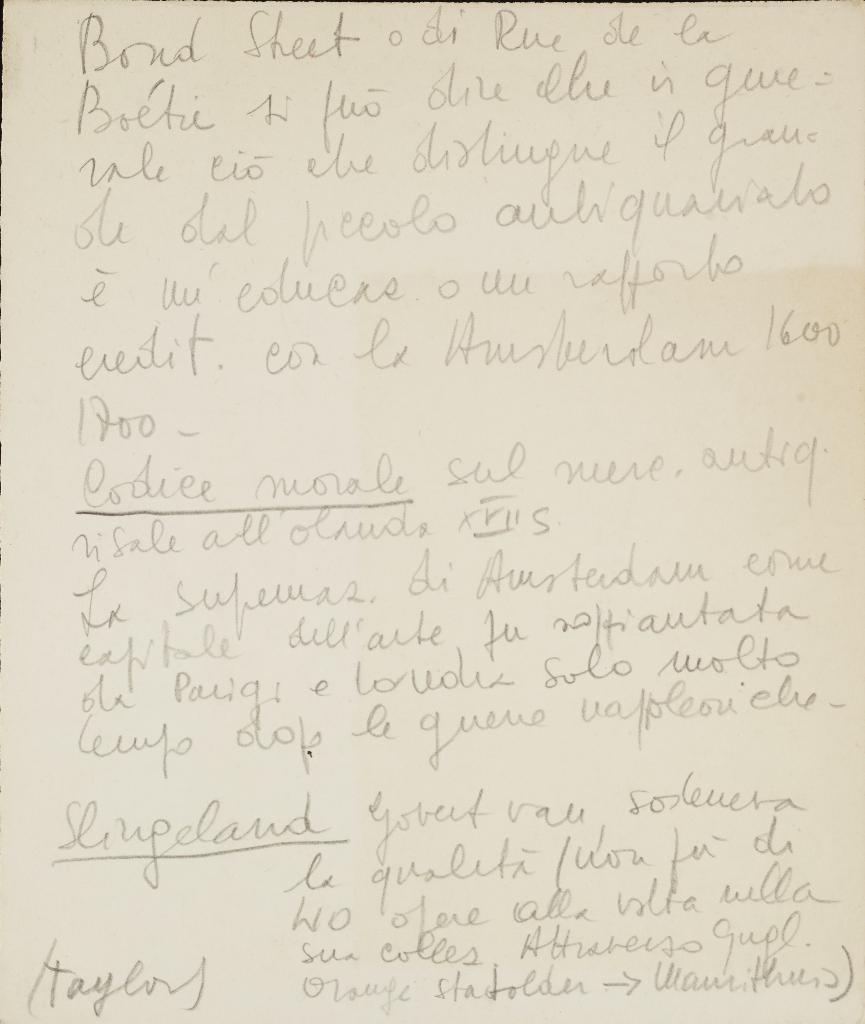 Bond Street o di Rue de la
Boétie si può dire che in gene-
rale ciò che distingue il gran-
de dal piccolo antiquariato
è un'educaz. o un rapporto
eredit. con la Amsterdam 1600
1700 -
Codice morale sul merc. antiq.
risale all'olanda XVII S.
La supremaz. di Amsterdam come
capitale dell'arte fu
da Parigi e Londra solo molto
tempo dopo le guerre napoleoniche -
Slingeland Govert van sosteneva
la qualità (non più di
40 opere alla volta nella
sua collez. Attraverso Gugl.
Orange statolder → Maurithuis)
(Taylor)